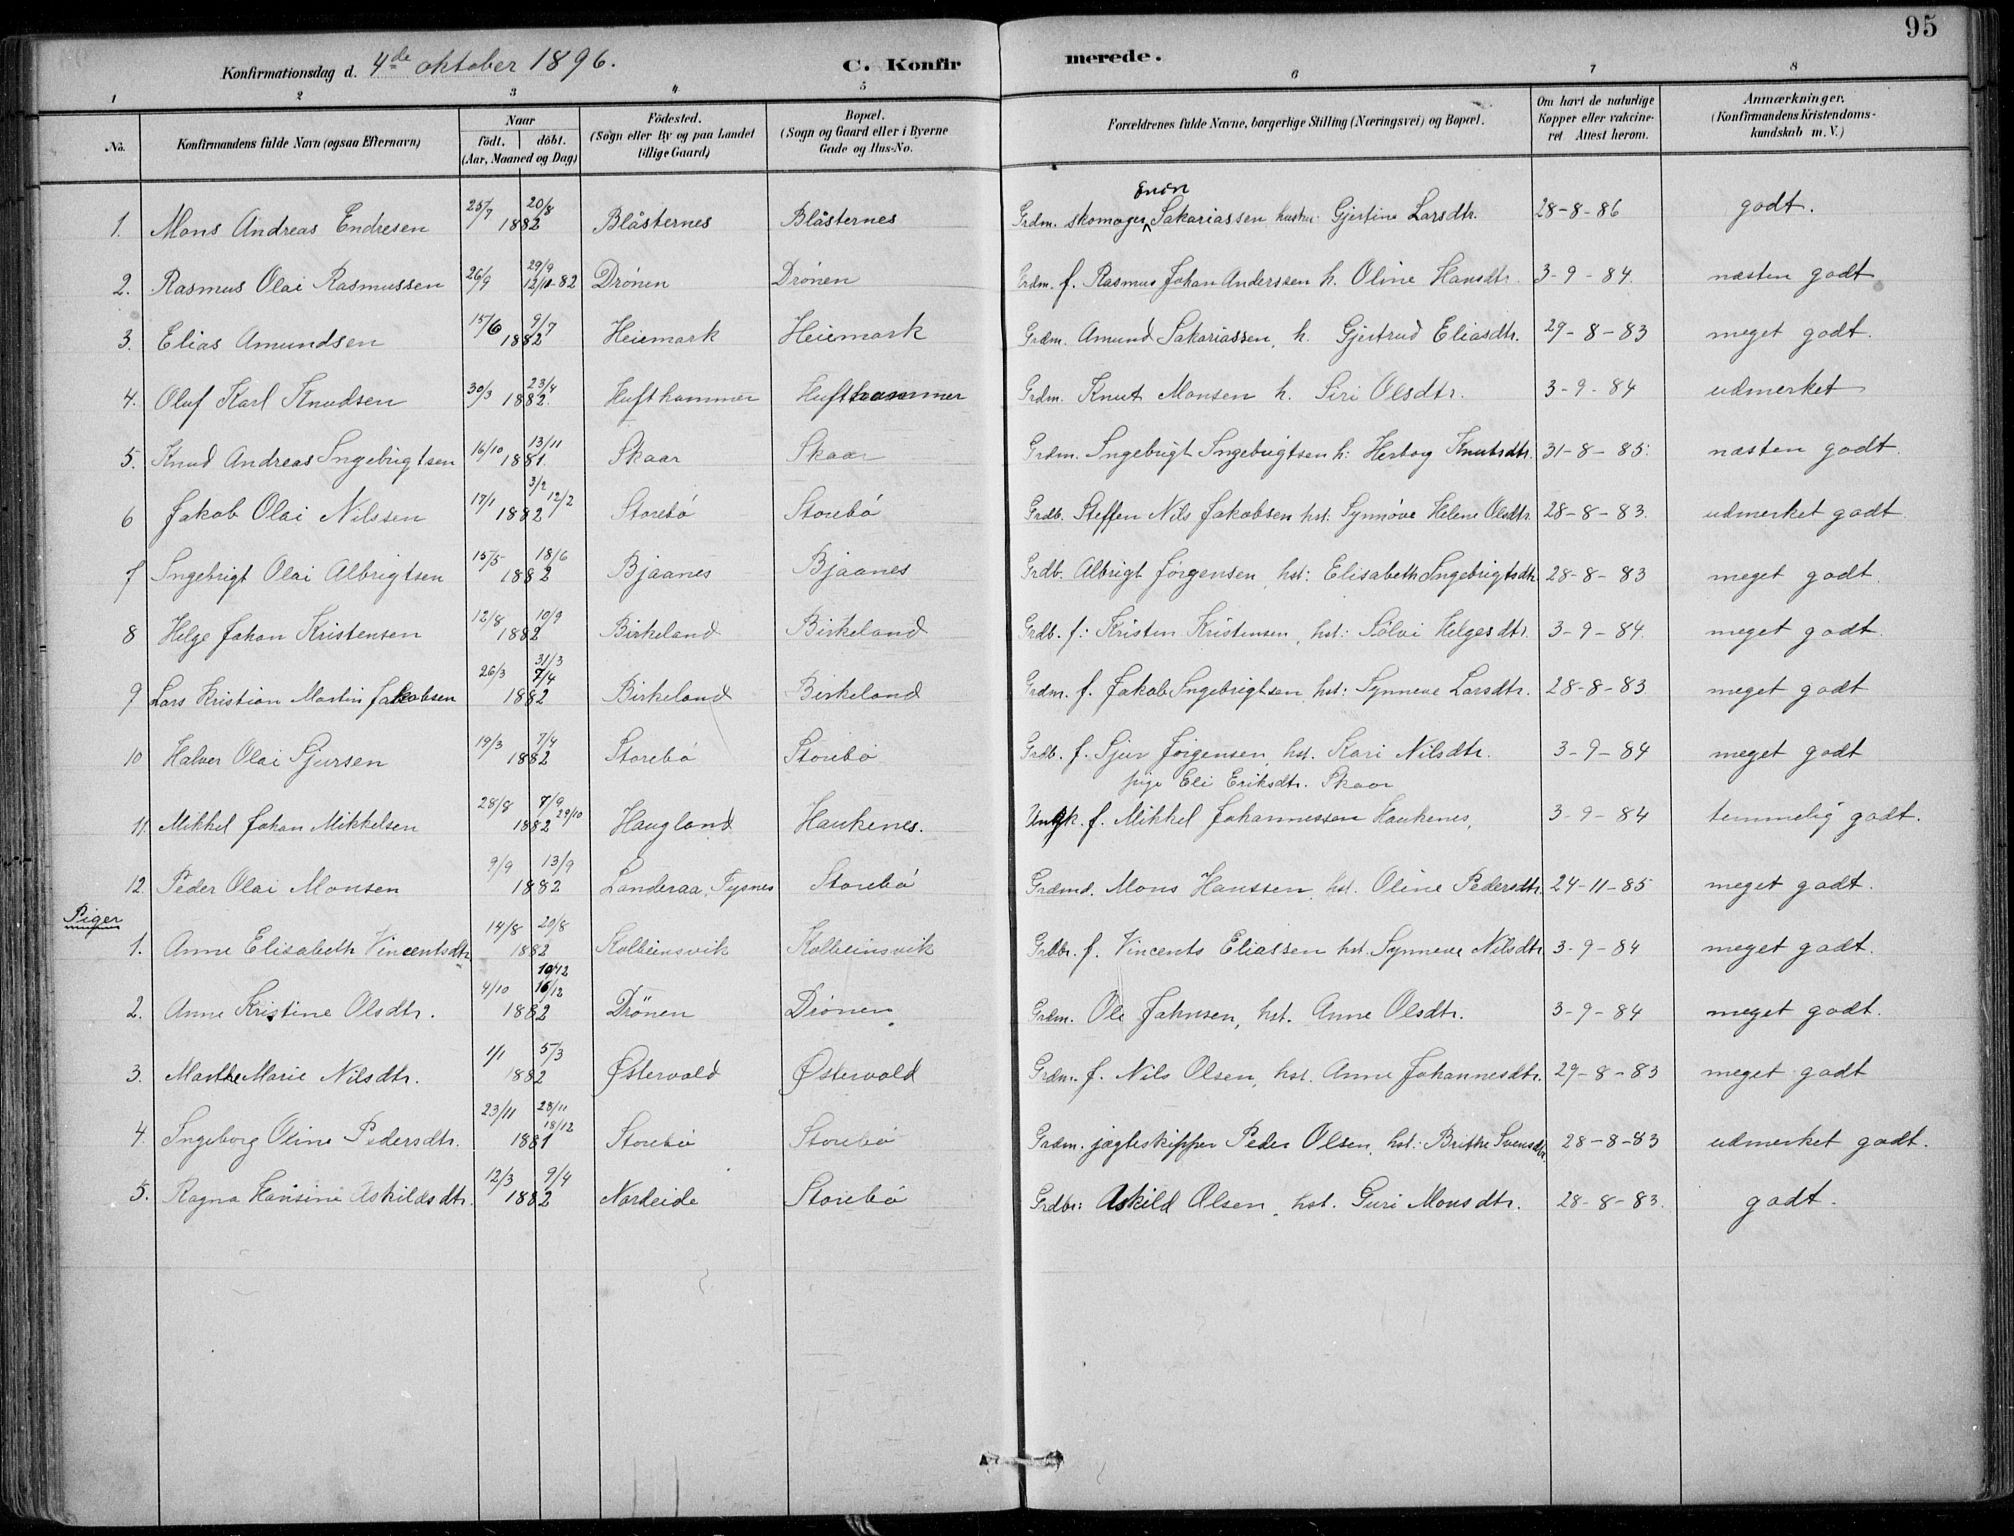 95
Konfirmationsdag d. 4de oktober 1896. C. Konfirmerede.
1 2 3 4 5 6 7 8
No. Konfirmandens fulde Navn (ogsaa Efternavn) Naar födt. döbt. (Aar, Maaned og Dag) Födested. (Sogn eller By og paa Landet tillige Gaard) Bopæl. (Sogn og Gaard eller i Byerne Gade og Hus-No. Forældrenes fulde Navne, borgerlige Stilling (Næringsvei) og Bopæl. Om havt de naturlige Kopper eller vakcineret Attest herom. Anmærkninger. (Konfirmandens Kristendomskundskab m. V.)
1. Mons Andreas Endresen 25/7 20/8 1882 Blåsternes Blåsternes Grdm. skomager Endr Sakariassen hustru Gjertine Larsdtr. 28-8-86 godt.
2. Rasmus Olai Rasmussen 26/9 29/9 12/11-82 Drönen Drönen Grdm. f. Rasmus Johan Anderssen h. Oline Hansdtr. 3-9-84. næsten godt
3. Elias Amundsen 15/6 9/7 1882 Heiemark Heiemark Grdm. Amund Sakariassen, h. Gjertrud Eliasdtr. 29-8-83 meget godt.
4. Oluf Karl Knudsen 30/3 23/4 1882. Hufthammer Hufthammer Grdm. Knut Monsen h. Siri Olsdtr. 3-9-84 udmerket
5. Knud Andreas Ingebrigtsen 16/10 13/11 1881. Skaar Skaar Grdm. Ingebrigt Ingebrigtsen h: Herborg Knutsdtr. 31-8-85. næsten godt.
6 Jakob Olai Nilssen 17/1 3/2 12/2 1882 Storebö Storebö Grdb. Steffen Nils Jakobsen hst: Synnöve Helene Olsdtr. 28-8-83. udmerket godt
7 Ingebrigt Olai Albrigtsen 15/5 18/6 1882 Bjaanes Bjaanes Grdb. Albrigt Jörgensen, hst: Elisabeth Ingebrigtsdtr. 28-8-83 meget godt.
8 Helge Johan Kristensen 12/8 10/9 1882 Birkeland Birkeland Grdb. f: Kristen Kristensen, hst: Sölvi Helgesdtr. 3-9-84. meget godt.
9 Lars Kristian Martin Jakobsen 26/3 31/3 7/4 1882 Birkeland Birkeland Grdm. f. Jakob Ingebrigtsen, hst: Synneve Larsdtr. 28-8-83 meget godt
10 Halver Olai Sjursen 19/3 7/4 1882 Storebö Storebö Grdb. f. Sjur Jörgensen, hst. Kari Nilsdtr. 3-9-84 meget godt
pige Eli Eriksdtr. Skaar
11 Mikkel Johan Mikkelsen 28/8 7/9 29/10 1882 Haugland Haukenes. Ungk. f. Mikkel Johannessen Haukenes, 3-9-84 temmelig godt.
12. Peder Olai Monsen 9/9 13/9 1882 Landeraa, Tysnes Storebö Grdmd. Mons Hanssen, hst. Oline Pedersdtr. 24-11-85 meget godt.
Piger
1. Anne Elisabeth Vincentsdtr. 14/8 20/8 1882 Kolbeinsvik Kolbeinsvik Grdbr. f. Vincents Eliassen hst. Synneve Nilsdtr. 3-9-84 meget godt.
2. Anne Kristine Olsdtr. 4/10 10/12 1882 Drönen Drönen Grdm. Ole Johnsen, hst. Anne Olsdtr. 3-9-84 meget godt.
3. Marthe Marie Nilsdtr. 1/1 5/3 1882 Østervold Østervold Grdm. f. Nils Olsen, hst. Anne Johannesdtr. 29-8-83 meget godt
4. Ingeborg Oline Pedersdtr. 23/11 28/11 18/12 1881 Storebö Storebö Grdm. jægteskipper Peder Olsen, hst: Brithe Svensdtr. 28-8-83 udmerket godt.
5. Ragna Hansine Askildsdtr. 12/3 9/4 1882 Nordeide Storebö Grdbr: Askild Olsen, hst. Guri Monsdtr. 28-8-83. godt.